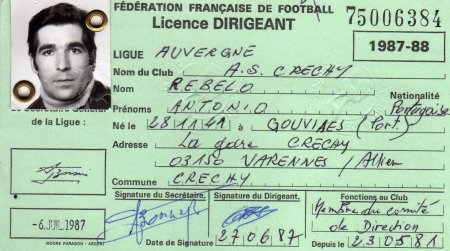 FÉDÉRATION FRANÇAISE DE FOOTBALL
Licence DIRIGEANT
75006384
1987-88
LIGUE AUVERGNE
Nom du Club A.S. CRECHY
Nom REBELO
Nationalité
Prénoms ANTONIO Portugaise
Le Secrétaire Général
de la Ligue :
Né le 28/11/41 à GOUVIAES (Port.)
Adresse La gare CRECHY
03150 VARENNES / Allier
Commune CRECHY
Signature du Secrétaire,
Signature du Dirigeant,
Fonctions au Club
Membre du comité
de Direction
-6 JUL. 1987
27.06.87
Depuis le 23.05.81
MOORE PARAGON - ARGENT